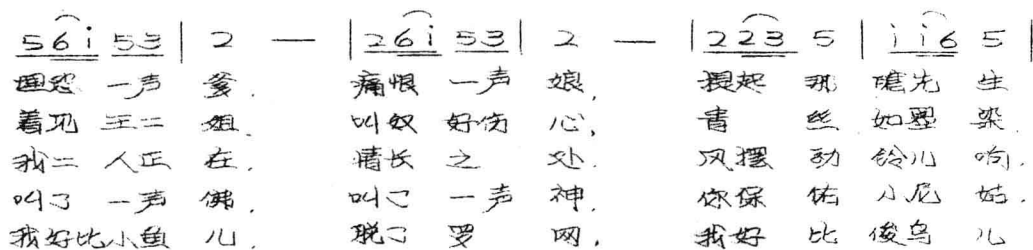 5 6 i 5 3 | 2 — | 2 6 i 5 3 | 2 — | 2 2 3 5 | i i 6 5 |
埋怨 一声 爹. 痛恨 一声 娘, 提起 那 瞎先 生
着见 王二 姐. 叫奴 好伤 心, 青 丝 如墨 染
我二 人正 在. 情长 之 处. 风摆 动 铃儿 响,
叫了 一声 佛. 叫了 一声 神. 你保 佑 小尼 姑.
我好比小鱼 儿. 脱了 罗 网, 我好 比 俊鸟 儿